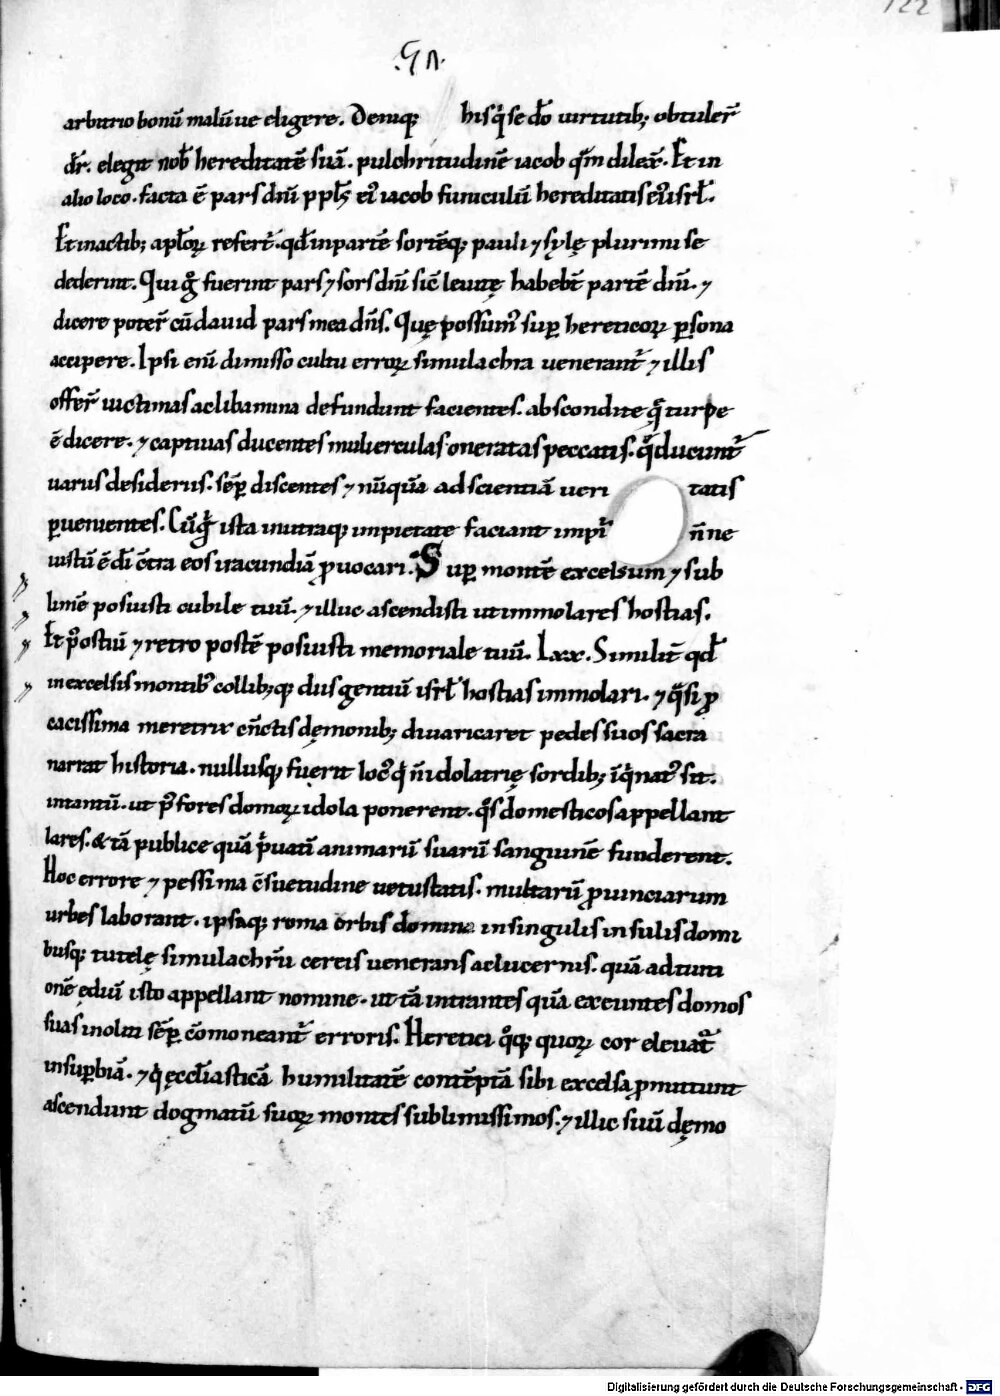 122
.G n.
arbitrio bonū malūue eligere. Deniq; hisq̇ se dō uirtutib; obtuler̄
dr̄. elegit nob̄ hereditatē suā. pulchritudinē iacob q̄m dilex̄. Et in
alio loco. facta ē pars dn̄i ppl̄s ei᾽ iacob funiculū hereditatis ei᾽ isrl̄.
Et inactib; apl̄oꝝ refert̄. qd̄ inpartē sortēq; pauli ⁊ sylę plurimi se
dederint. Qui gͦ fuerint pars ⁊ sors dn̄i sic̄ leuitę habebt̄ partē dn̄i. ⁊
dicere poter̄ cū dauid pars mea dn̄s. Quę possum᾽ sup̲ hereticoꝝ ꝑsona
accipere. Ipsi eni̅ dimisso cultu erroꝝ simulachra uenerant̄ ⁊ illis
offer̄ uictimas ac libamina defundunt facientes. abscondite q̄ turpe
ē dicere. ⁊ captiuas ducentes mulierculas oneratas peccatis. q̄ ducunt̄
uariis desideriis. sēꝑ discentes ⁊ nūquā ad scientiā ueri tatis
ꝑuenientes. Cūq; ista utraq; impietate faciant impi᾽ n̄ne
iustū ē di̅ c̄tra eos iracundiā ꝓuocari. Suꝑ montē excelsum ⁊ sub
limē posuisti cubile tuū. ⁊ illuc ascendisti ut immolares hostias.
Et p᾽ ostiū ⁊ retro postē posuisti memoriale tuū. Lxx. Similit̄ qd̄
in excelsis montib᾽ collib;q; diis gentiū isrl̄ hostias immolari. ⁊ q̄si ꝓ
cacissima meretrix cūctis dęmonib; diuaricaret pedes suos sacra
narrat historia. nullusq; fuerit loc᾽ q̇ n̄ idolatrię sordib; īq̇nat᾽ sit.
intantū. ut p᾽ fores domoꝝ idola ponerent. q̄s domesticos appellant
lares. & tā publice quā ṗuati̅ animarū suarū sanguinē funderent.
Hoc errore ⁊ pessima c̄suetudine uetustatis. multarū ꝓuinciarum
urbes laborant. ipsaq; roma orbis domina in singulis insulis domi
busq; tutelę simulachrū cereis uenerans ac lucernis. quā ad tuiti
onē ędiū isto appellant nomine. ut tā intrantes quā exeuntes domos
suas inoliti sēꝑ c̄moneant̄ erroris. Heretici qͦq; quoꝝ cor eleuat̄
in suꝑbiā. ⁊ q̇ ęccl̄iasticā humilitatē contēptā sibi excelsa ꝓmittunt
ascendunt dogmatū suoꝝ montes sublimissimos. ⁊ illic siui̅ dęmo
Digitalisierung gefördert durch die Deutsche Forschungsgemeinschaft - DFG